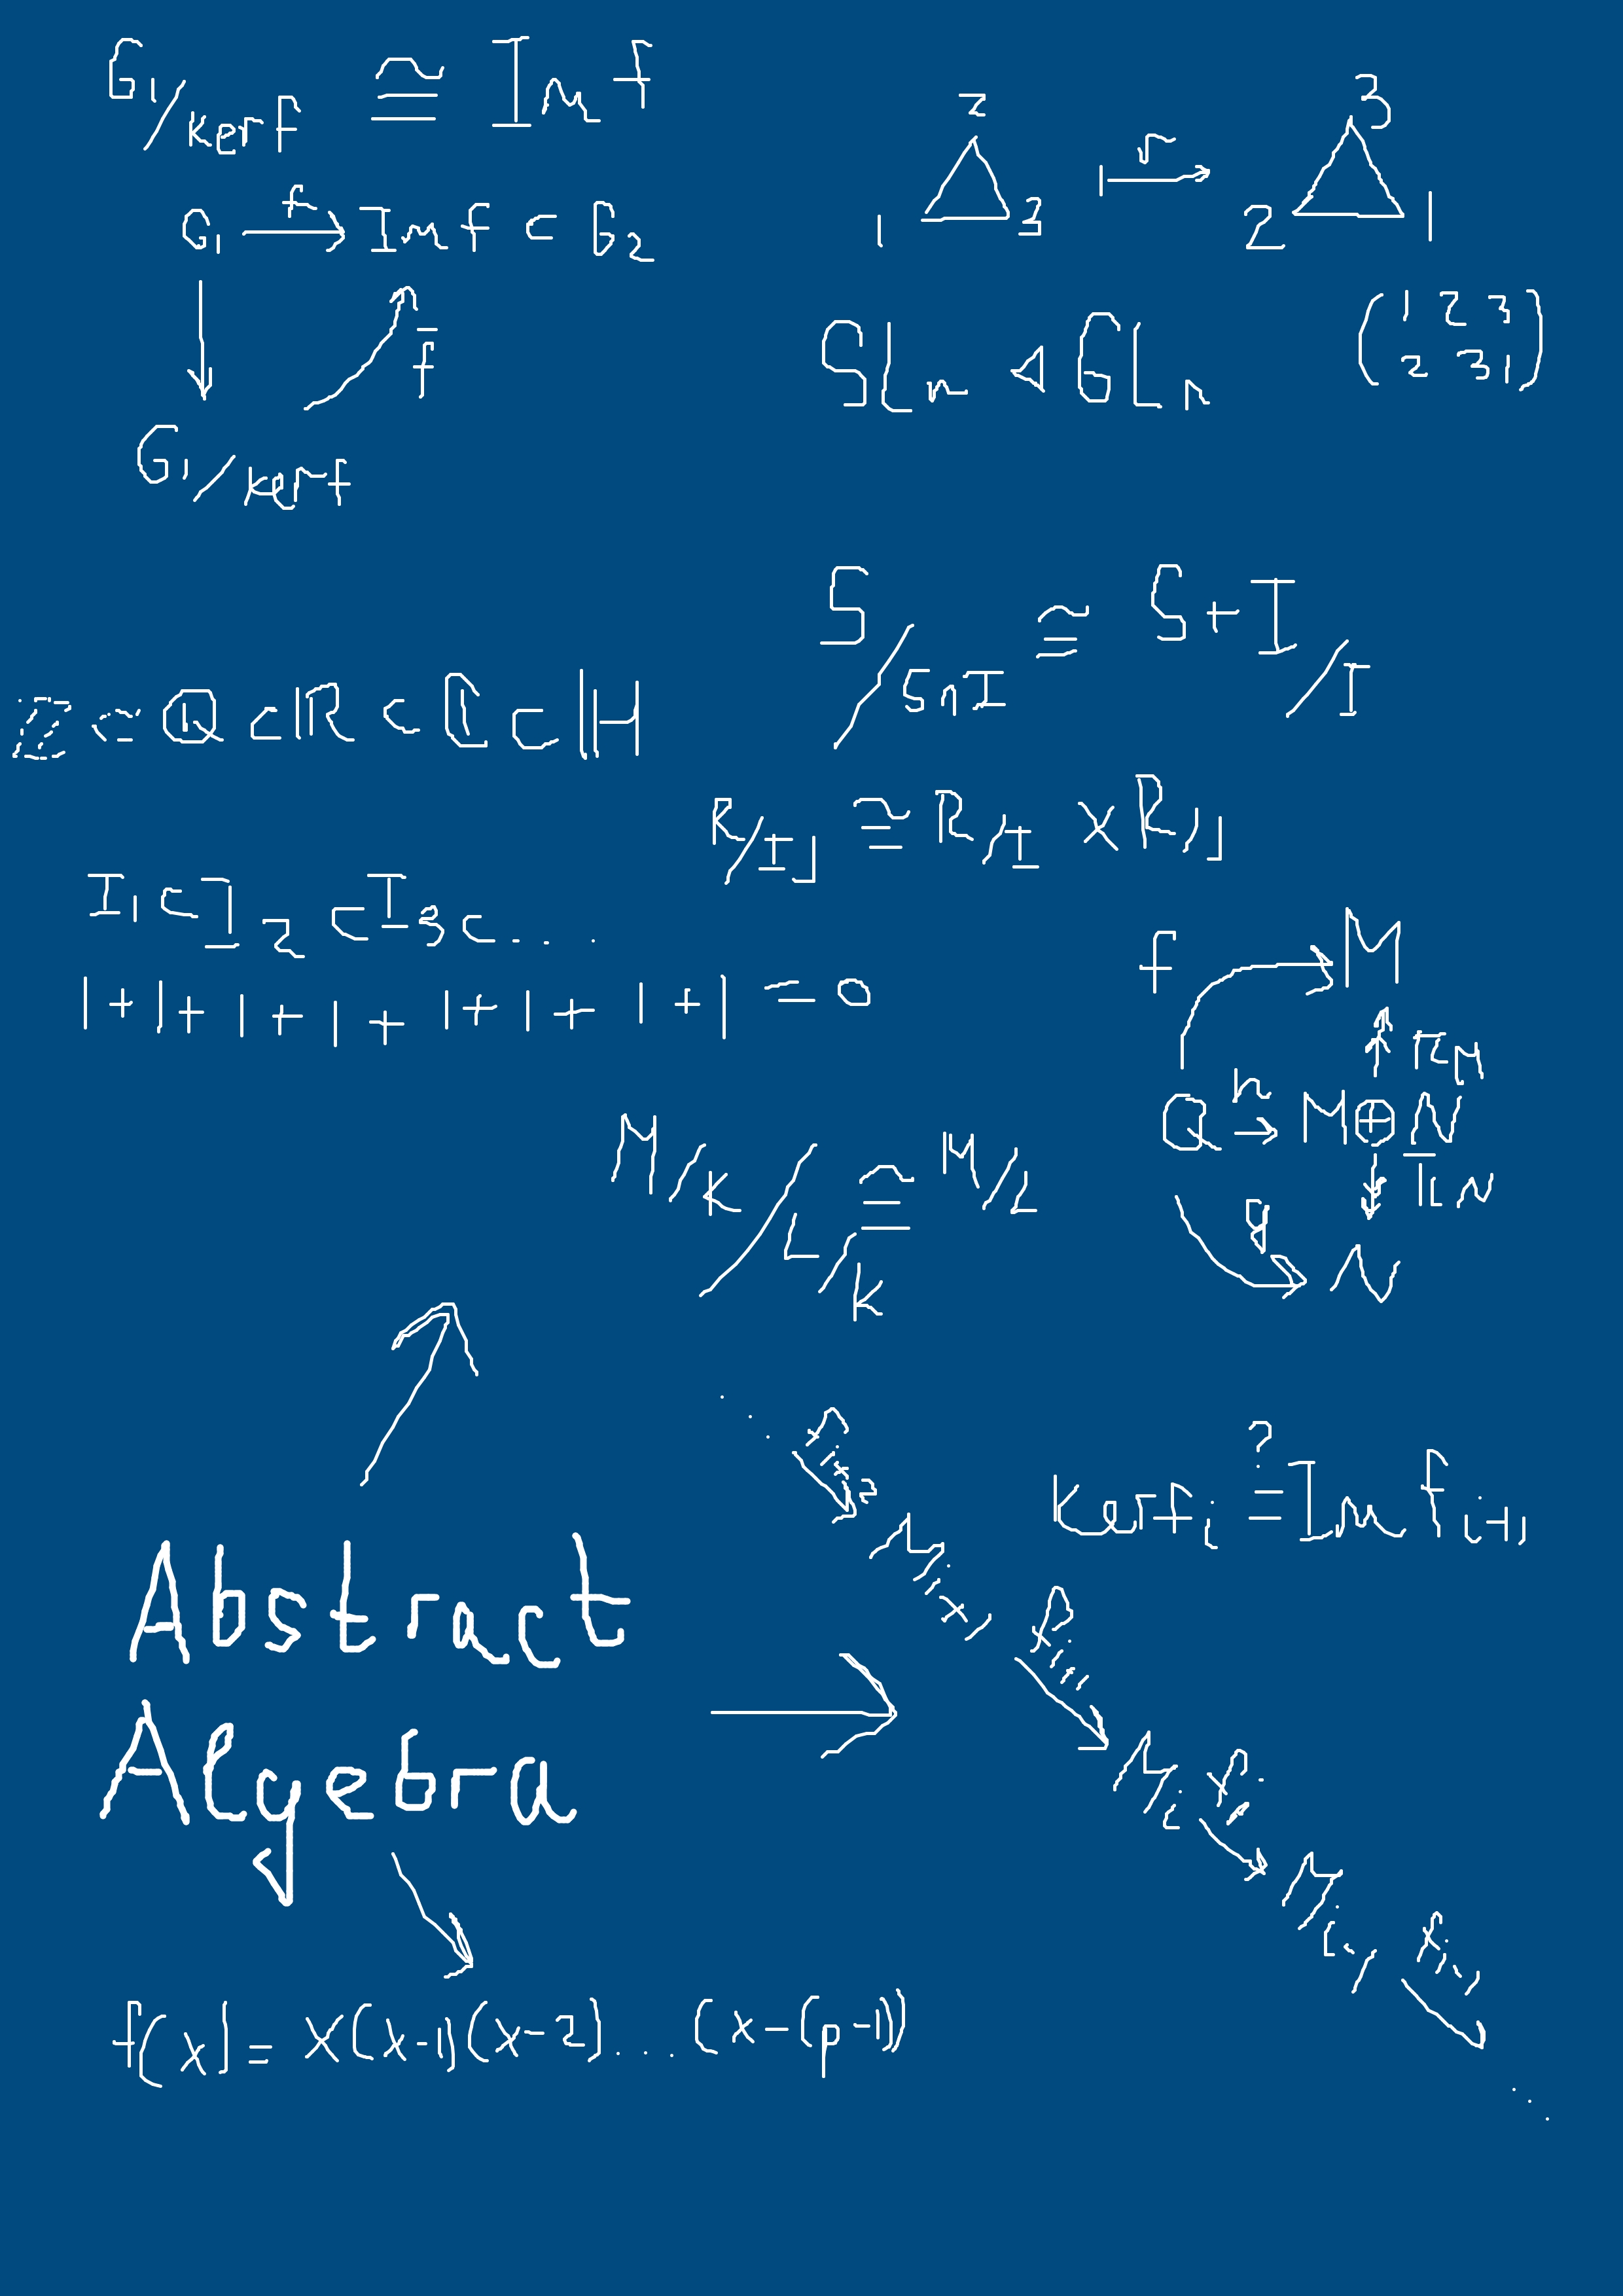 G₁/kerf ≅ Im f
G₁ f→ Im f ⊂ G₂
f̄
G₁/kerf
2
1 3
r
3
2 1
SLn ◁ GLn
( 1 2 3
2 3 1 )
S/S∩I ≅ S+I/I
ℤ ⊂ ℚ ⊂ ℝ ⊂ ℂ ⊂ ℍ
R/IJ ≅ R/I × R/J
I₁ ⊂ I₂ ⊂ I₃ ⊂ ...
1+1+1+1+1+1+1+1 = 0
f M
πM
Q h→ M⊕N
πN
g N
M/K/L/K ≅ M/L
... fi+2 Mi+1 fi+1 Mi fi Mi-1 fi-1 ...
Kerfi ?= Im fi+1
Abstract
Algebra
f(x) = x(x-1)(x-2)....(x-(p-1))